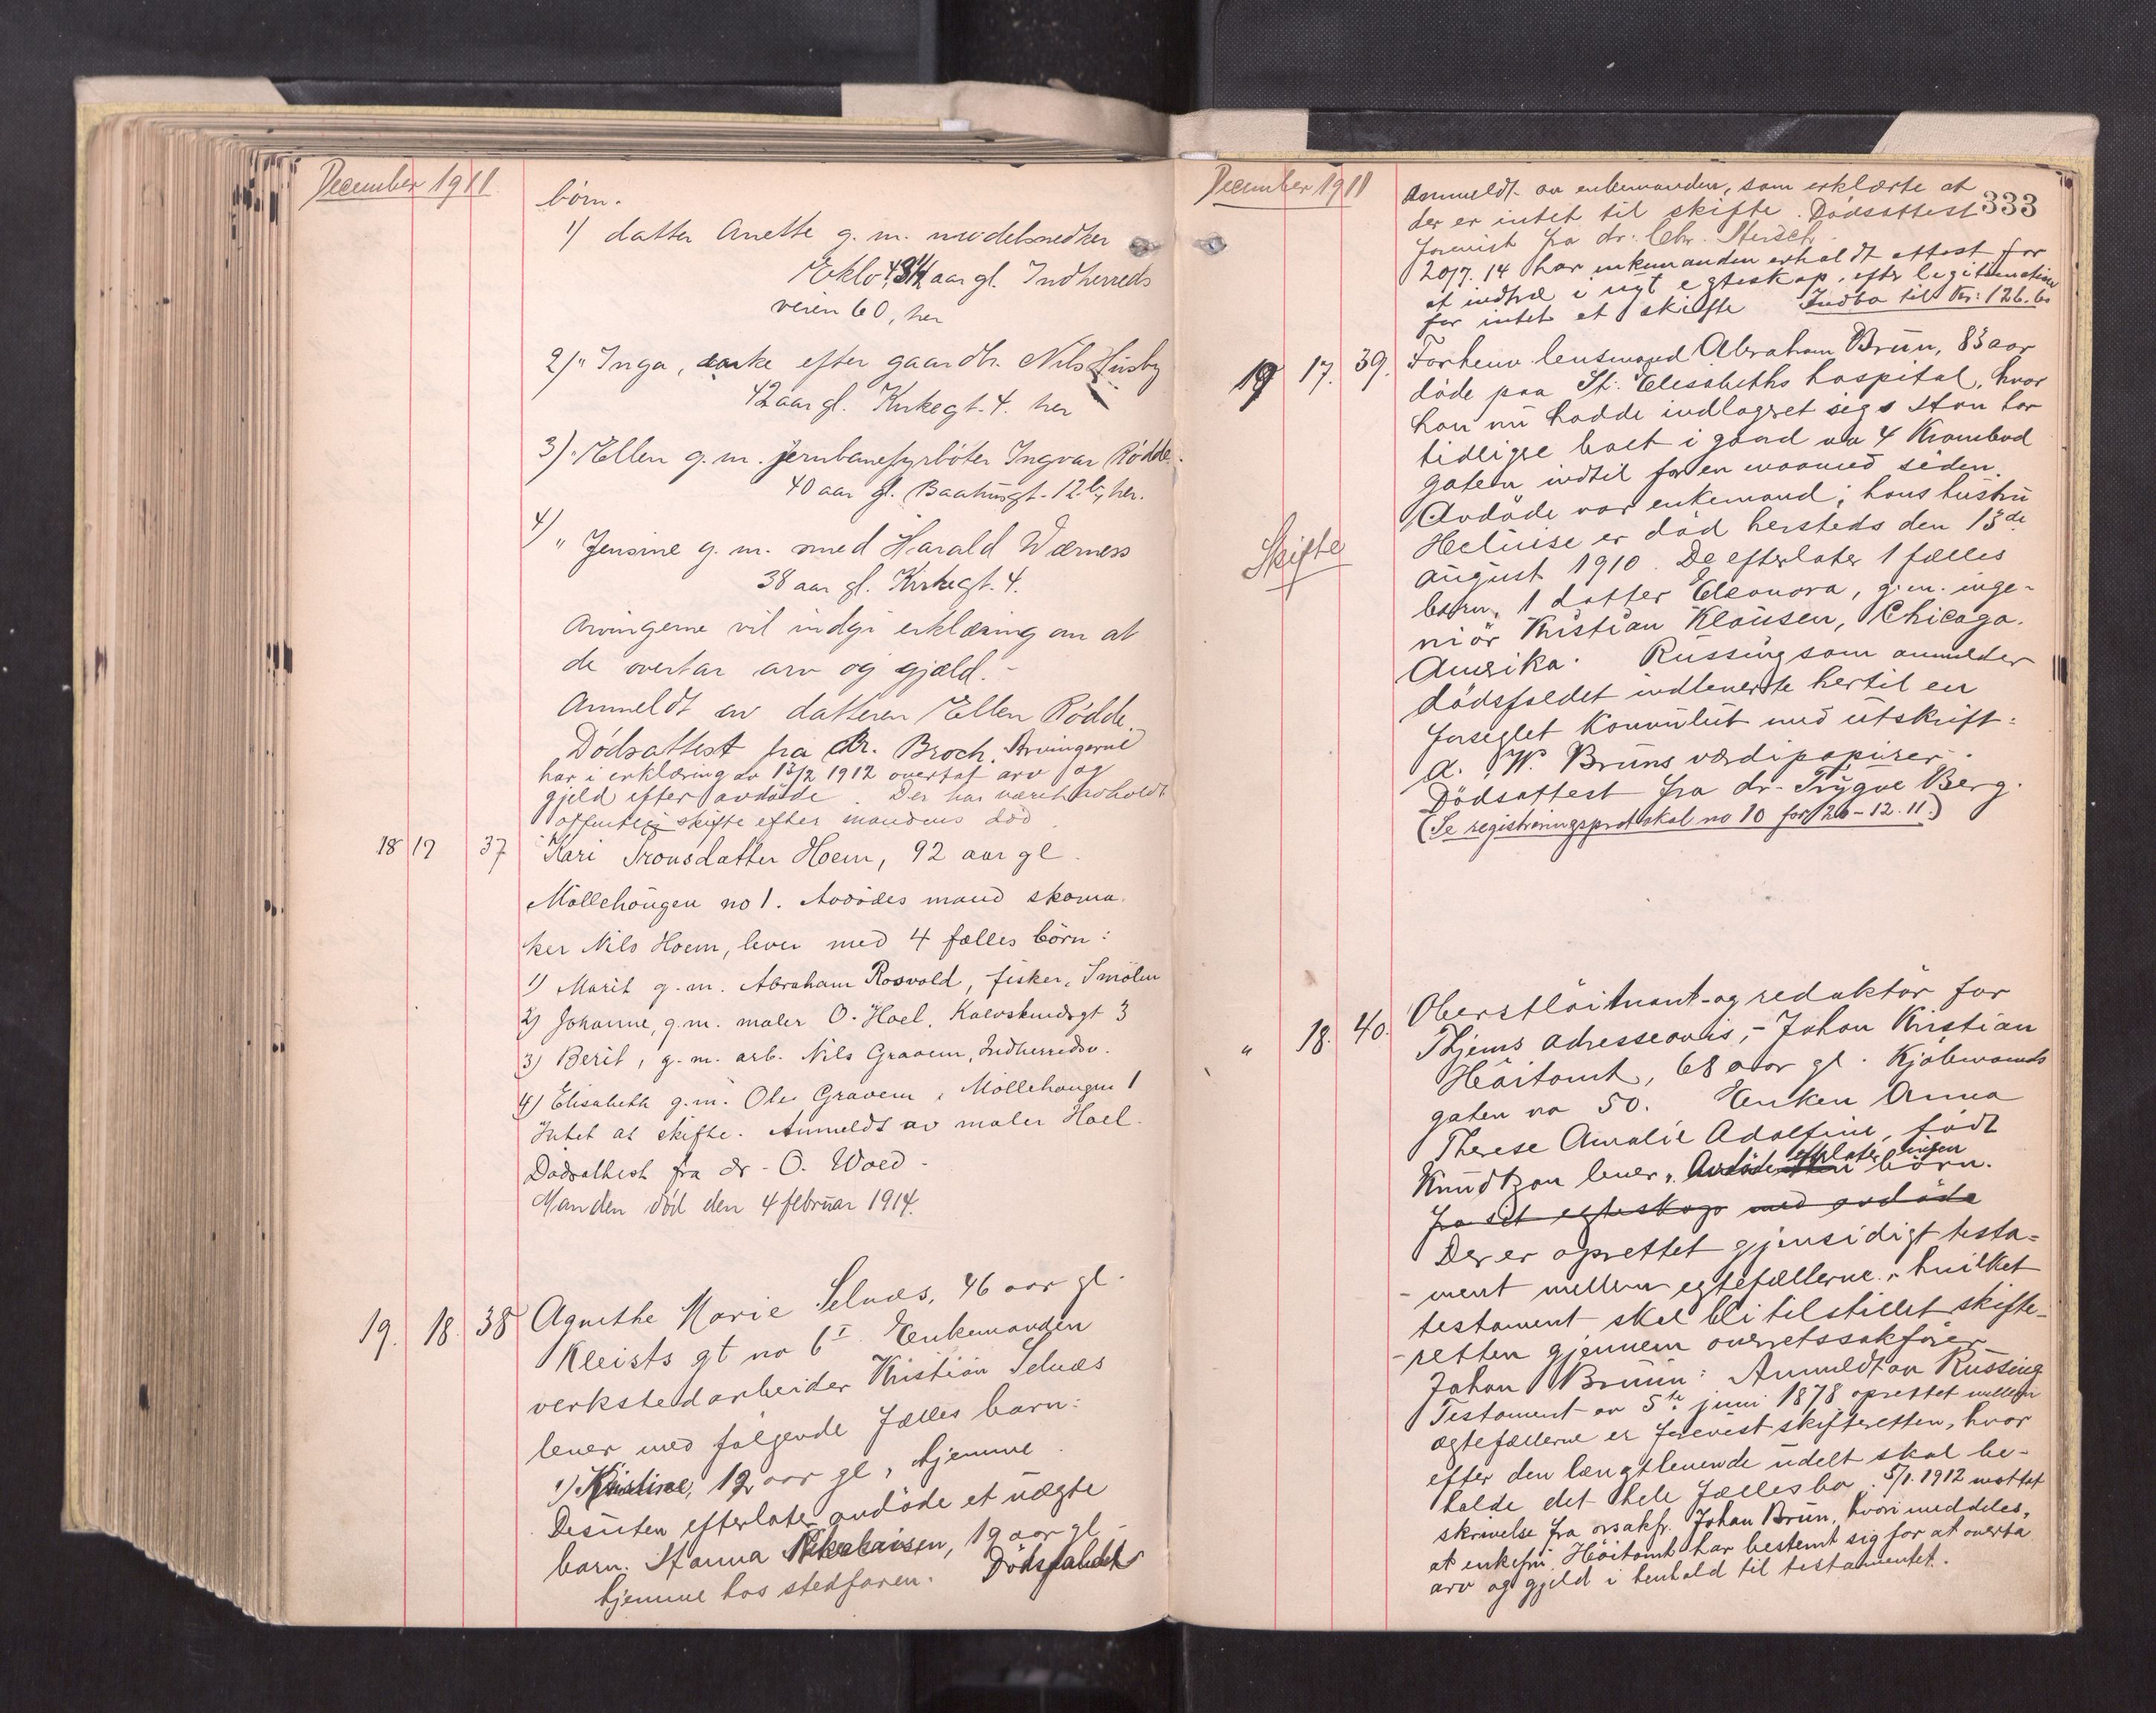 December 1911
børn.
1) datter Anette g. m. modelsnedker
Eklo, aar gl. Indherreds
veien 60, her
2) " Inga, enke efter gaardbr. Nils Husby
42 aar gl. Kirkegt. 4. her
3) " Ellen g. m. jernbanefyrbøter Ingvar Rødde.
40 aar gl. 12 b, her.
4)
" Jensine g. m. smed Harald Værness
38 aar gl. Kirkegt. 4.
Arvingerne vil indgi erklæring om at
de overtar arv og gjæld.-
Anmeldt av datteren Ellen Rødde.
Dødsattest fra dr. Broch. Arvingerne
har i erklæring av 13/2 1912 overtat arv og
gjeld efter avdøde. Der har været avholdt
offentlig skifte efter mandens død.
18 17 37 Kari Tronsdatter Hoem, 92 aar gl.
Møllehaugen no 1. Avdødes mand skoma-
ker Nils Hoem, lever med 4 fælles børn:
1) Marit g. m. Abraham Rosvold, fisker, Smølen
2) Johanne, g. m. maler O. Hoel, Kalvskindsgt 3
3) Berit, g. m. arb. Nils Gravem, Indherredsv.
4) Elisabeth g. m. Ole Gravem, Møllehaugen 1
Intet at skifte. Anmeldt av maler Hoel.
Dødsattest fra dr. O. Wold-
Manden død den 4 februar 1914.
19. 18. 38 Agnethe Marie Selnæs, 46 aar gl.
Kleists gt no 6 I Enkemanden
verkstedarbeider Kristian Selnæs
lever med følgende fælles barn:
1) Kristine, 12 aar gl, hjemme.
Desuten efterlater avdøde et uægte
barn. Hanna Nikolaisen, 19 aar gl.
hjemme hos stedfaren. Dødsfaldet
December 1911
333
Anmeldt av enkemanden, som erklærte at
der er intet til skifte. Dødsattest
forevist fra dr. Chr.
20/7. 14 har enkemanden erholdt attest for
at indtræ i nyt egteskap, efter legitimation
for intet at skifte Indbo til Kr: 126.60
19 17. 39. Forhenv lensmand Abraham Brun, 83 aar
døde paa St. Elisabeths hospital, hvor
han nu hadde indlagret sig. Han har
tidligre boet i gaard no 4 Krambod
gaten indtil for en maaned siden.
Avdøde var enkemand; hans hustru
Helvise er død hersteds den 13de
Skifte
august 1910. De efterlater 1 fælles
barn, 1 datter Eleonora, g. m. inge-
niør Kristian Klausen, Chicago.
Amerika. Russing som anmelder
dødsfaldet indleverte hertil en
forseglet konvolut med utskrift:
A. W. Bruns værdipapirer.
Dødsattest fra dr. Trygve Berg.
(Se registreringsprotokol no 10 for 20-12.11.)
" 18. 40. Oberstløitnant- og redaktør for
Thjems adresseavis,- Johan Kristian
Høitomt, 68 aar gl. Kjøbmands
gaten no 50. Enken Anna
Therese Amalie Adolfine, født
Knudtzon lever. Avdøde efterlater ingen børn.
fra sit egteskap med avdøde
Der er oprettet gjensidigt testa-
-ment mellem egtefællerne, hvilket
testament skal bli tilstillet skifte-
-retten gjennem overretssakfører
Johan Bruun: Anmeldt av Russing
Testament av 5te juni 1878 oprettet mellem
ægtefællerne er forevist skifteretten, hvor
efter den længstlevende udelt skal be-
holde det hele fællesbo. 5/1. 1912 mottat
skrivelse fra orsakf. Johan Brun, hvori meddeles,
at enkefru Høitomt har bestemt sig for at overta
arv og gjeld i henhold til testamentet.